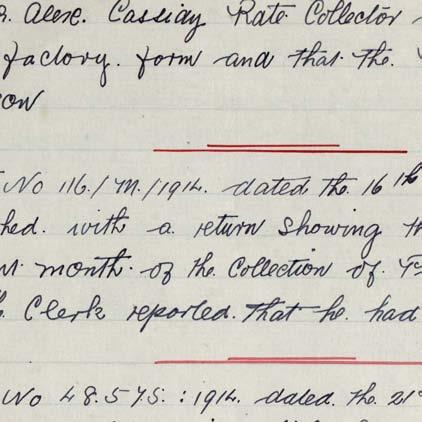 . Alex. Cassidy Rate Collector
factory. form and that the.
son
No 116./M./1914. dated the. 16th
hed. with a return showing th
month. of the Collection of.
Clerk reported. that he. had
No 48.575. : 1914. dated. the. 21st